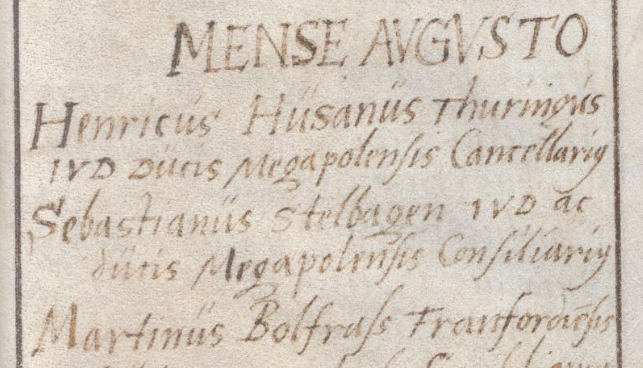 MENSE AVGVSTO
Henricus Husanus Thuringus
IVD Ducis Megapolensis Cancellarius
Sebastianus Stelbagen IVD ac
ducis Megapolensis Consiliarius
Martinus Bolfrass Francfordẽsis